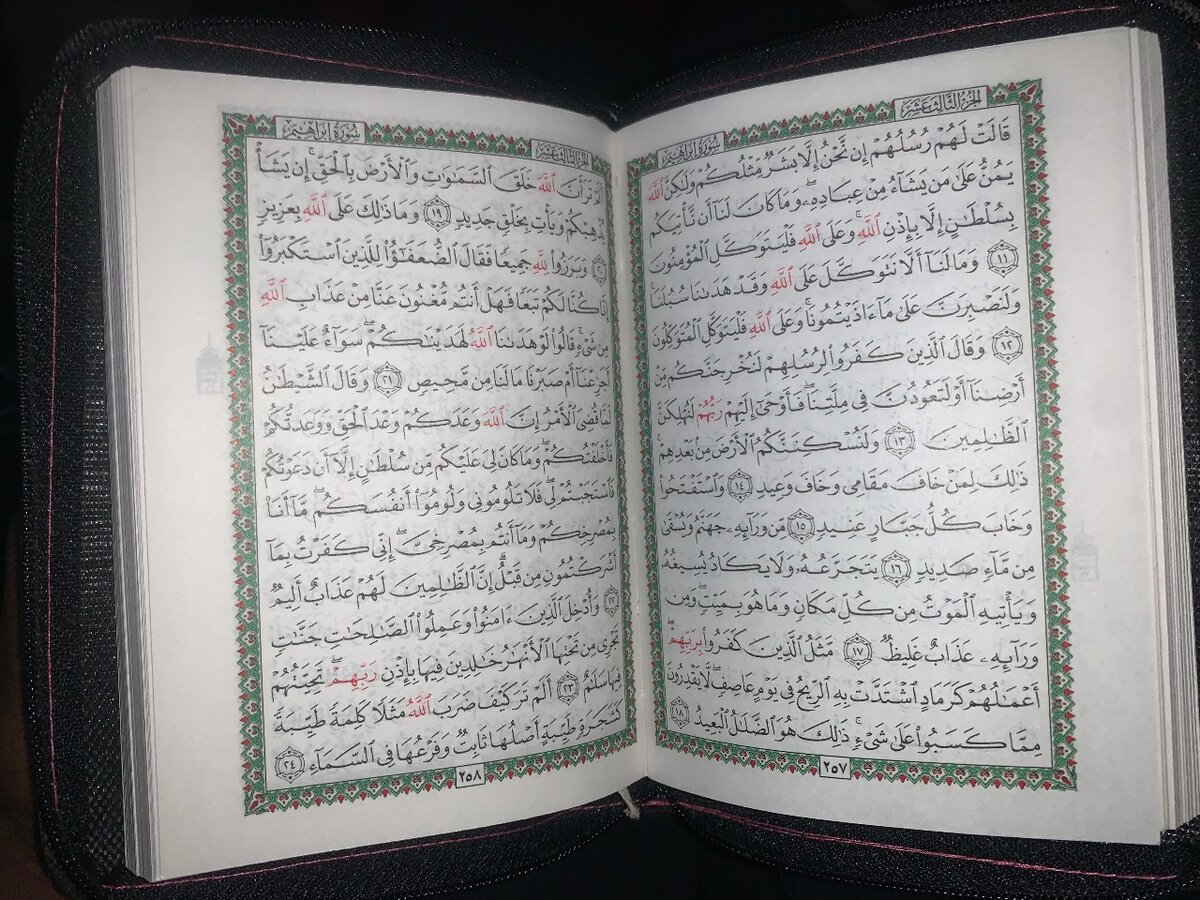 الجزء الثالث عشر
سورة ابراهيم
قَالَتْ لَهُمْ رُسُلُهُمْ إِن نَّحْنُ إِلَّا بَشَرٌ مِّثْلُكُمْ وَلَٰكِنَّ ٱللَّهَ
يَمُنُّ عَلَىٰ مَن يَشَآءُ مِنْ عِبَادِهِۦ ۖ وَمَا كَانَ لَنَآ أَن نَّأْتِيَكُم
بِسُلْطَٰنٍ إِلَّا بِإِذْنِ ٱللَّهِ ۚ وَعَلَى ٱللَّهِ فَلْيَتَوَكَّلِ ٱلْمُؤْمِنُونَ
١١ وَمَا لَنَآ أَلَّا نَتَوَكَّلَ عَلَى ٱللَّهِ وَقَدْ هَدَىٰنَا سُبُلَنَا ۚ
وَلَنَصْبِرَنَّ عَلَىٰ مَآ ءَاذَيْتُمُونَا ۚ وَعَلَى ٱللَّهِ فَلْيَتَوَكَّلِ ٱلْمُتَوَكِّلُونَ
١٢ وَقَالَ ٱلَّذِينَ كَفَرُوا۟ لِرُسُلِهِمْ لَنُخْرِجَنَّكُم مِّنْ
أَرْضِنَآ أَوْ لَتَعُودُنَّ فِى مِلَّتِنَا ۖ فَأَوْحَىٰٓ إِلَيْهِمْ رَبُّهُمْ لَنُهْلِكَنَّ
ٱلظَّٰلِمِينَ ١٣ وَلَنُسْكِنَنَّكُمُ ٱلْأَرْضَ مِنۢ بَعْدِهِمْ ۚ
ذَٰلِكَ لِمَنْ خَافَ مَقَامِى وَخَافَ وَعِيدِ ١٤ وَٱسْتَفْتَحُوا۟
وَخَابَ كُلُّ جَبَّارٍ عَنِيدٍ ١٥ مِّن وَرَآئِهِۦ جَهَنَّمُ وَيُسْقَىٰ
مِن مَّآءٍ صَدِيدٍ ١٦ يَتَجَرَّعُهُۥ وَلَا يَكَادُ يُسِيغُهُۥ
وَيَأْتِيهِ ٱلْمَوْتُ مِن كُلِّ مَكَانٍ وَمَا هُوَ بِمَيِّتٍ ۖ وَمِن
وَرَآئِهِۦ عَذَابٌ غَلِيظٌ ١٧ مَّثَلُ ٱلَّذِينَ كَفَرُوا۟ بِرَبِّهِمْ ۖ
أَعْمَٰلُهُمْ كَرَمَادٍ ٱشْتَدَّتْ بِهِ ٱلرِّيحُ فِى يَوْمٍ عَاصِفٍ ۖ لَّا يَقْدِرُونَ
مِمَّا كَسَبُوا۟ عَلَىٰ شَىْءٍ ۚ ذَٰلِكَ هُوَ ٱلضَّلَٰلُ ٱلْبَعِيدُ ١٨
٢٥٧
الجزء الثالث عشر
سورة ابراهيم
أَلَمْ تَرَ أَنَّ ٱللَّهَ خَلَقَ ٱلسَّمَٰوَٰتِ وَٱلْأَرْضَ بِٱلْحَقِّ ۚ إِن يَشَأْ
يُذْهِبْكُمْ وَيَأْتِ بِخَلْقٍ جَدِيدٍ ١٩ وَمَا ذَٰلِكَ عَلَى ٱللَّهِ بِعَزِيزٍ
٢٠ وَبَرَزُوا۟ لِلَّهِ جَمِيعًا فَقَالَ ٱلضُّعَفَٰٓؤُا۟ لِلَّذِينَ ٱسْتَكْبَرُوٓا۟
إِنَّا كُنَّا لَكُمْ تَبَعًا فَهَلْ أَنتُم مُّغْنُونَ عَنَّا مِنْ عَذَابِ ٱللَّهِ
مِن شَىْءٍ ۚ قَالُوا۟ لَوْ هَدَىٰنَا ٱللَّهُ لَهَدَيْنَٰكُمْ ۖ سَوَآءٌ عَلَيْنَآ
أَجَزِعْنَآ أَمْ صَبَرْنَا مَا لَنَا مِن مَّحِيصٍ ٢١ وَقَالَ ٱلشَّيْطَٰنُ
لَمَّا قُضِىَ ٱلْأَمْرُ إِنَّ ٱللَّهَ وَعَدَكُمْ وَعْدَ ٱلْحَقِّ وَوَعَدتُّكُمْ
فَأَخْلَفْتُكُمْ ۖ وَمَا كَانَ لِىَ عَلَيْكُم مِّن سُلْطَٰنٍ إِلَّآ أَن دَعَوْتُكُمْ
فَٱسْتَجَبْتُمْ لِى ۖ فَلَا تَلُومُونِى وَلُومُوٓا۟ أَنفُسَكُم ۖ مَّآ أَنَا۠
بِمُصْرِخِكُمْ وَمَآ أَنتُم بِمُصْرِخِىَّ ۖ إِنِّى كَفَرْتُ بِمَآ
أَشْرَكْتُمُونِ مِن قَبْلُ ۗ إِنَّ ٱلظَّٰلِمِينَ لَهُمْ عَذَابٌ أَلِيمٌ
٢٢ وَأُدْخِلَ ٱلَّذِينَ ءَامَنُوا۟ وَعَمِلُوا۟ ٱلصَّٰلِحَٰتِ جَنَّٰتٍ
تَجْرِى مِن تَحْتِهَا ٱلْأَنْهَٰرُ خَٰلِدِينَ فِيهَا بِإِذْنِ رَبِّهِمْ ۖ تَحِيَّتُهُمْ
فِيهَا سَلَٰمٌ ٢٣ أَلَمْ تَرَ كَيْفَ ضَرَبَ ٱللَّهُ مَثَلًا كَلِمَةً طَيِّبَةً
كَشَجَرَةٍ طَيِّبَةٍ أَصْلُهَا ثَابِتٌ وَفَرْعُهَا فِى ٱلسَّمَآءِ ٢٤
٢٥٨